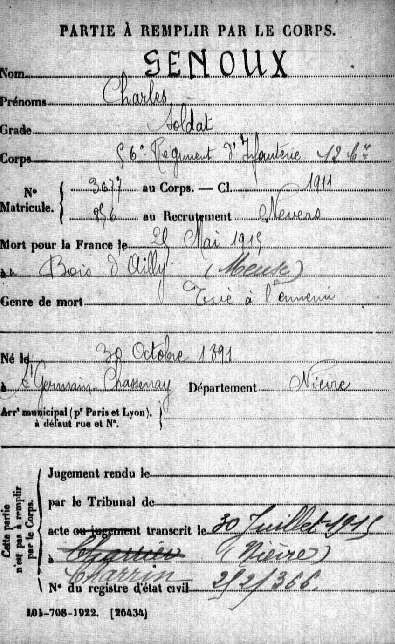 PARTIE À REMPLIR PAR LE CORPS.
Nom GENOUX
Prénoms Charles
Grade Soldat
Corps 56e Régiment d'Infanterie 12e Cie
N° Matricule. { 3677 au Corps. — Cl. 1911
856 au Recrutement Nevers
Mort pour la France le 25 Mai 1915
à Bois d'Ailly (Meuse)
Genre de mort Tué à l'ennemi
Né le 30 Octobre 1891
à St Germain-Chassenay Département Nièvre
Arr' municipal (p' Paris et Lyon). }
à défaut rue et N°.
Cette partie n'est pas à remplir par le Corps.
Jugement rendu le
par le Tribunal de
acte ou jugement transcrit le 30 Juillet 1915
à (Nièvre)
Charrin
N° du registre d'état civil 2/2/366
101-708-1922. [26434]